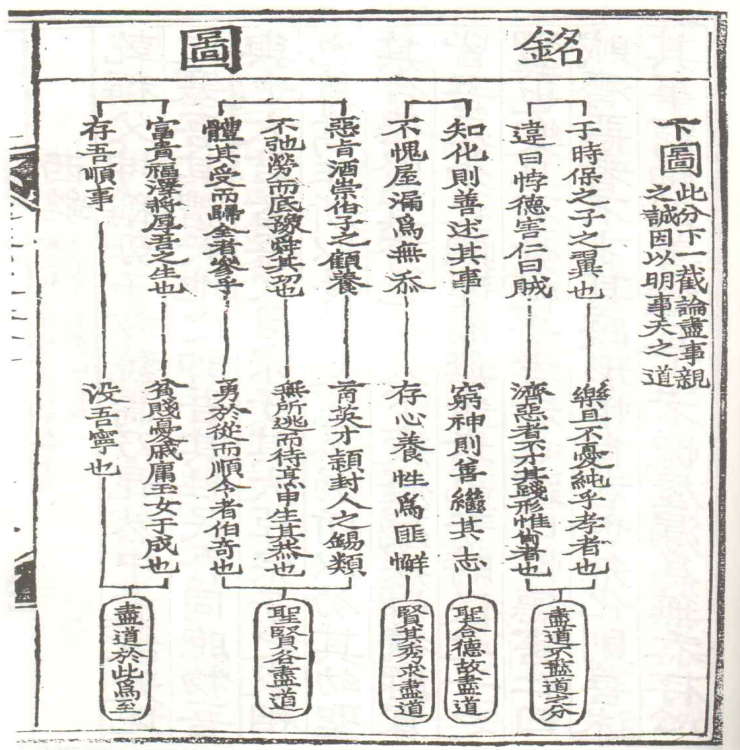 銘
圖
下圖
此分下一截論盡事親
之誠因以明事天之道
于時保之子之翼也
樂且不憂純乎孝者也
違曰悖德害仁曰賊
濟惡者不才其踐形惟肖者也
盡道不盡道之分
知化則善述其事
窮神則善繼其志
聖合德故盡道
不愧屋漏爲無忝
存心養性爲匪懈
賢其秀求盡道
惡旨酒崇伯子之顧養
育英才穎封人之錫類
不弛勞而底豫舜其功也
無所逃而待烹申生其恭也
體其受而歸全者參乎
勇於從而順令者伯奇也
聖賢各盡道
富貴福澤將厚吾之生也
貧賤憂戚庸玉女于成也
存吾順事
没吾寧也
盡道於此爲至